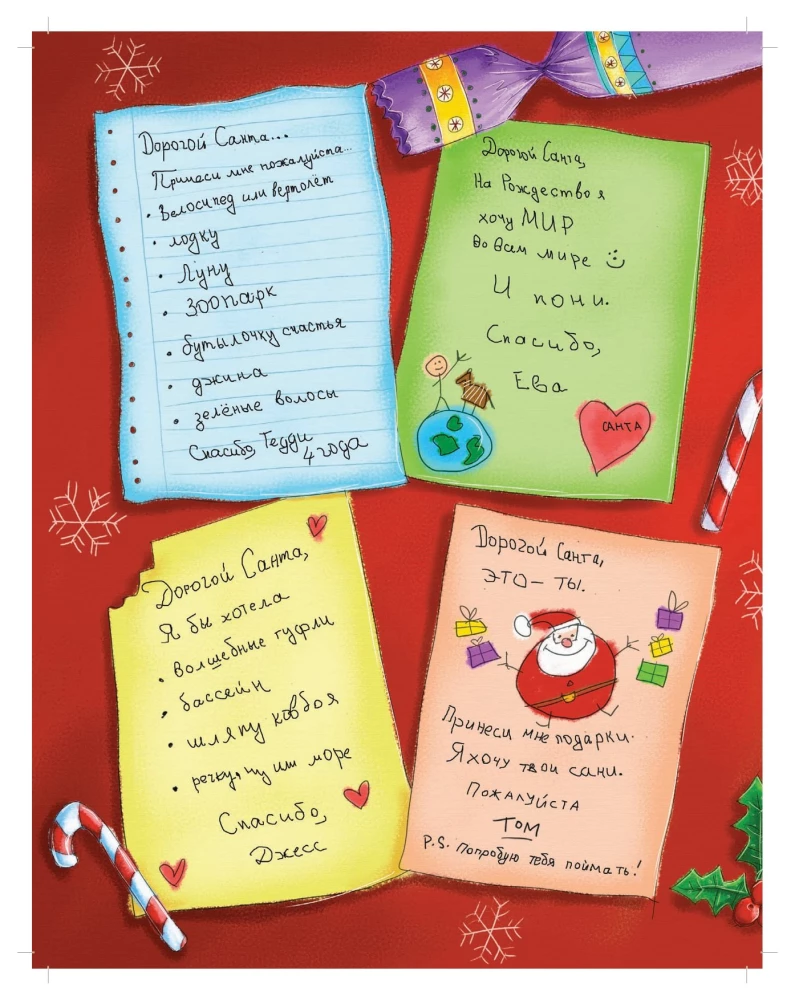 Дорогой Санта...
Принеси мне пожалуйста...
• Велосипед или вертолёт
• лодку
• Луну
• зоопарк
• бутылочку счастья
• джина
• зелёные волосы
Спасибо, Тедди
4 года
Дорогой Санта,
На Рождество я
хочу МИР
во всем мире
И пони.
Спасибо,
Ева
САНТА
Дорогой Санта,
Я бы хотела
• волшебные туфли
• бассейн
• шляпу ковбоя
• речку, ну или море
Спасибо,
Джесс
Дорогой Санта,
ЭТО – ТЫ.
Принеси мне подарки.
Я хочу твои сани.
ПОЖАЛУЙСТА
ТОМ
P.S. Попробую тебя поймать!